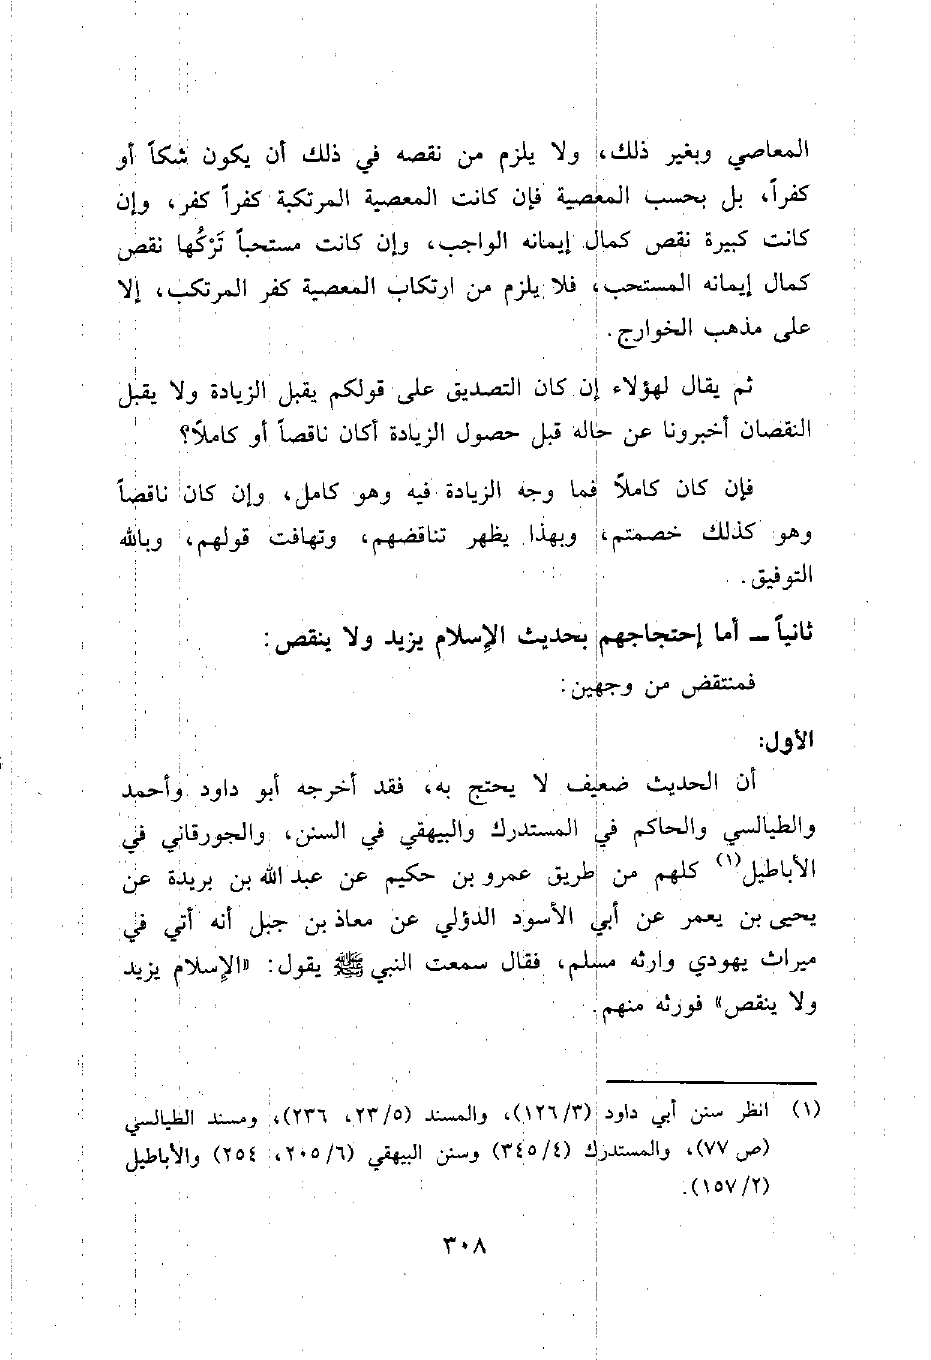 المعاصي وبغير ذلك، ولا يلزم من نقصه في ذلك أن يكون شكاً أو
كفراً، بل بحسب المعصية فإن كانت المعصية المرتكبة كفراً كفر، وإن
كانت كبيرة نقص كمال إيمانه الواجب، وإن كانت مستحباً تَرْكُها نقص
كمال إيمانه المستحب، فلا يلزم من ارتكاب المعصية كفر المرتكب، إلا
على مذهب الخوارج.
ثم يقال لهؤلاء إن كان التصديق على قولكم يقبل الزيادة ولا يقبل
النقصان أخبرونا عن حاله قبل حصول الزيادة أكان ناقصاً أو كاملاً؟
فإن كان كاملاً فما وجه الزيادة فيه وهو كامل، وإن كان ناقصاً
وهو كذلك خصمتم، وبهذا يظهر تناقضهم، وتهافت قولهم، وبالله
التوفيق.
ثانياً ــ أما إحتجاجهم بحديث الإسلام يزيد ولا ينقص:
فمنتقض من وجهين:
الأول:
أن الحديث ضعيف لا يحتج به، فقد أخرجه أبو داود وأحمد
والطيالسي والحاكم في المستدرك والبيهقي في السنن، والجورقاني في
الأباطيل(١) كلهم من طريق عمرو بن حكيم عن عبد الله بن بريدة عن
يحيى بن يعمر عن أبي الأسود الدؤلي عن معاذ بن جبل أنه أتي في
ميراث يهودي وارثه مسلم، فقال سمعت النبي ﷺ يقول: «الإسلام يزيد
ولا ينقص» فورثه منهم.
(١) انظر سنن أبي داود (١٢٦/٣)، والمسند (٢٣/٥، ٢٣٦)، ومسند الطيالسي
(ص ٧٧)، والمستدرك (٣٤٥/٤) وسنن البيهقي (٢٠٥/٦، ٢٥٤) والأباطيل
(١٥٧/٢).
٣٠٨